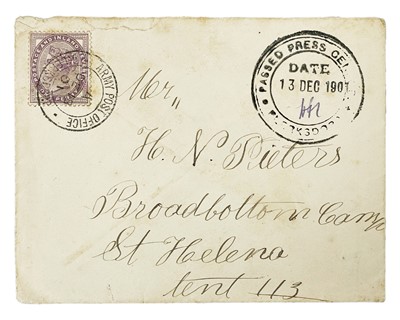 POSTAGE AND INLAND
ARMY POST OFFICE
PASSED PRESS CENSOR
DATE
13 DEC 1901
KLERKSDORP
Mr,,
H. N. Pieters
Broadbottom Camp
St Helena
tent 113